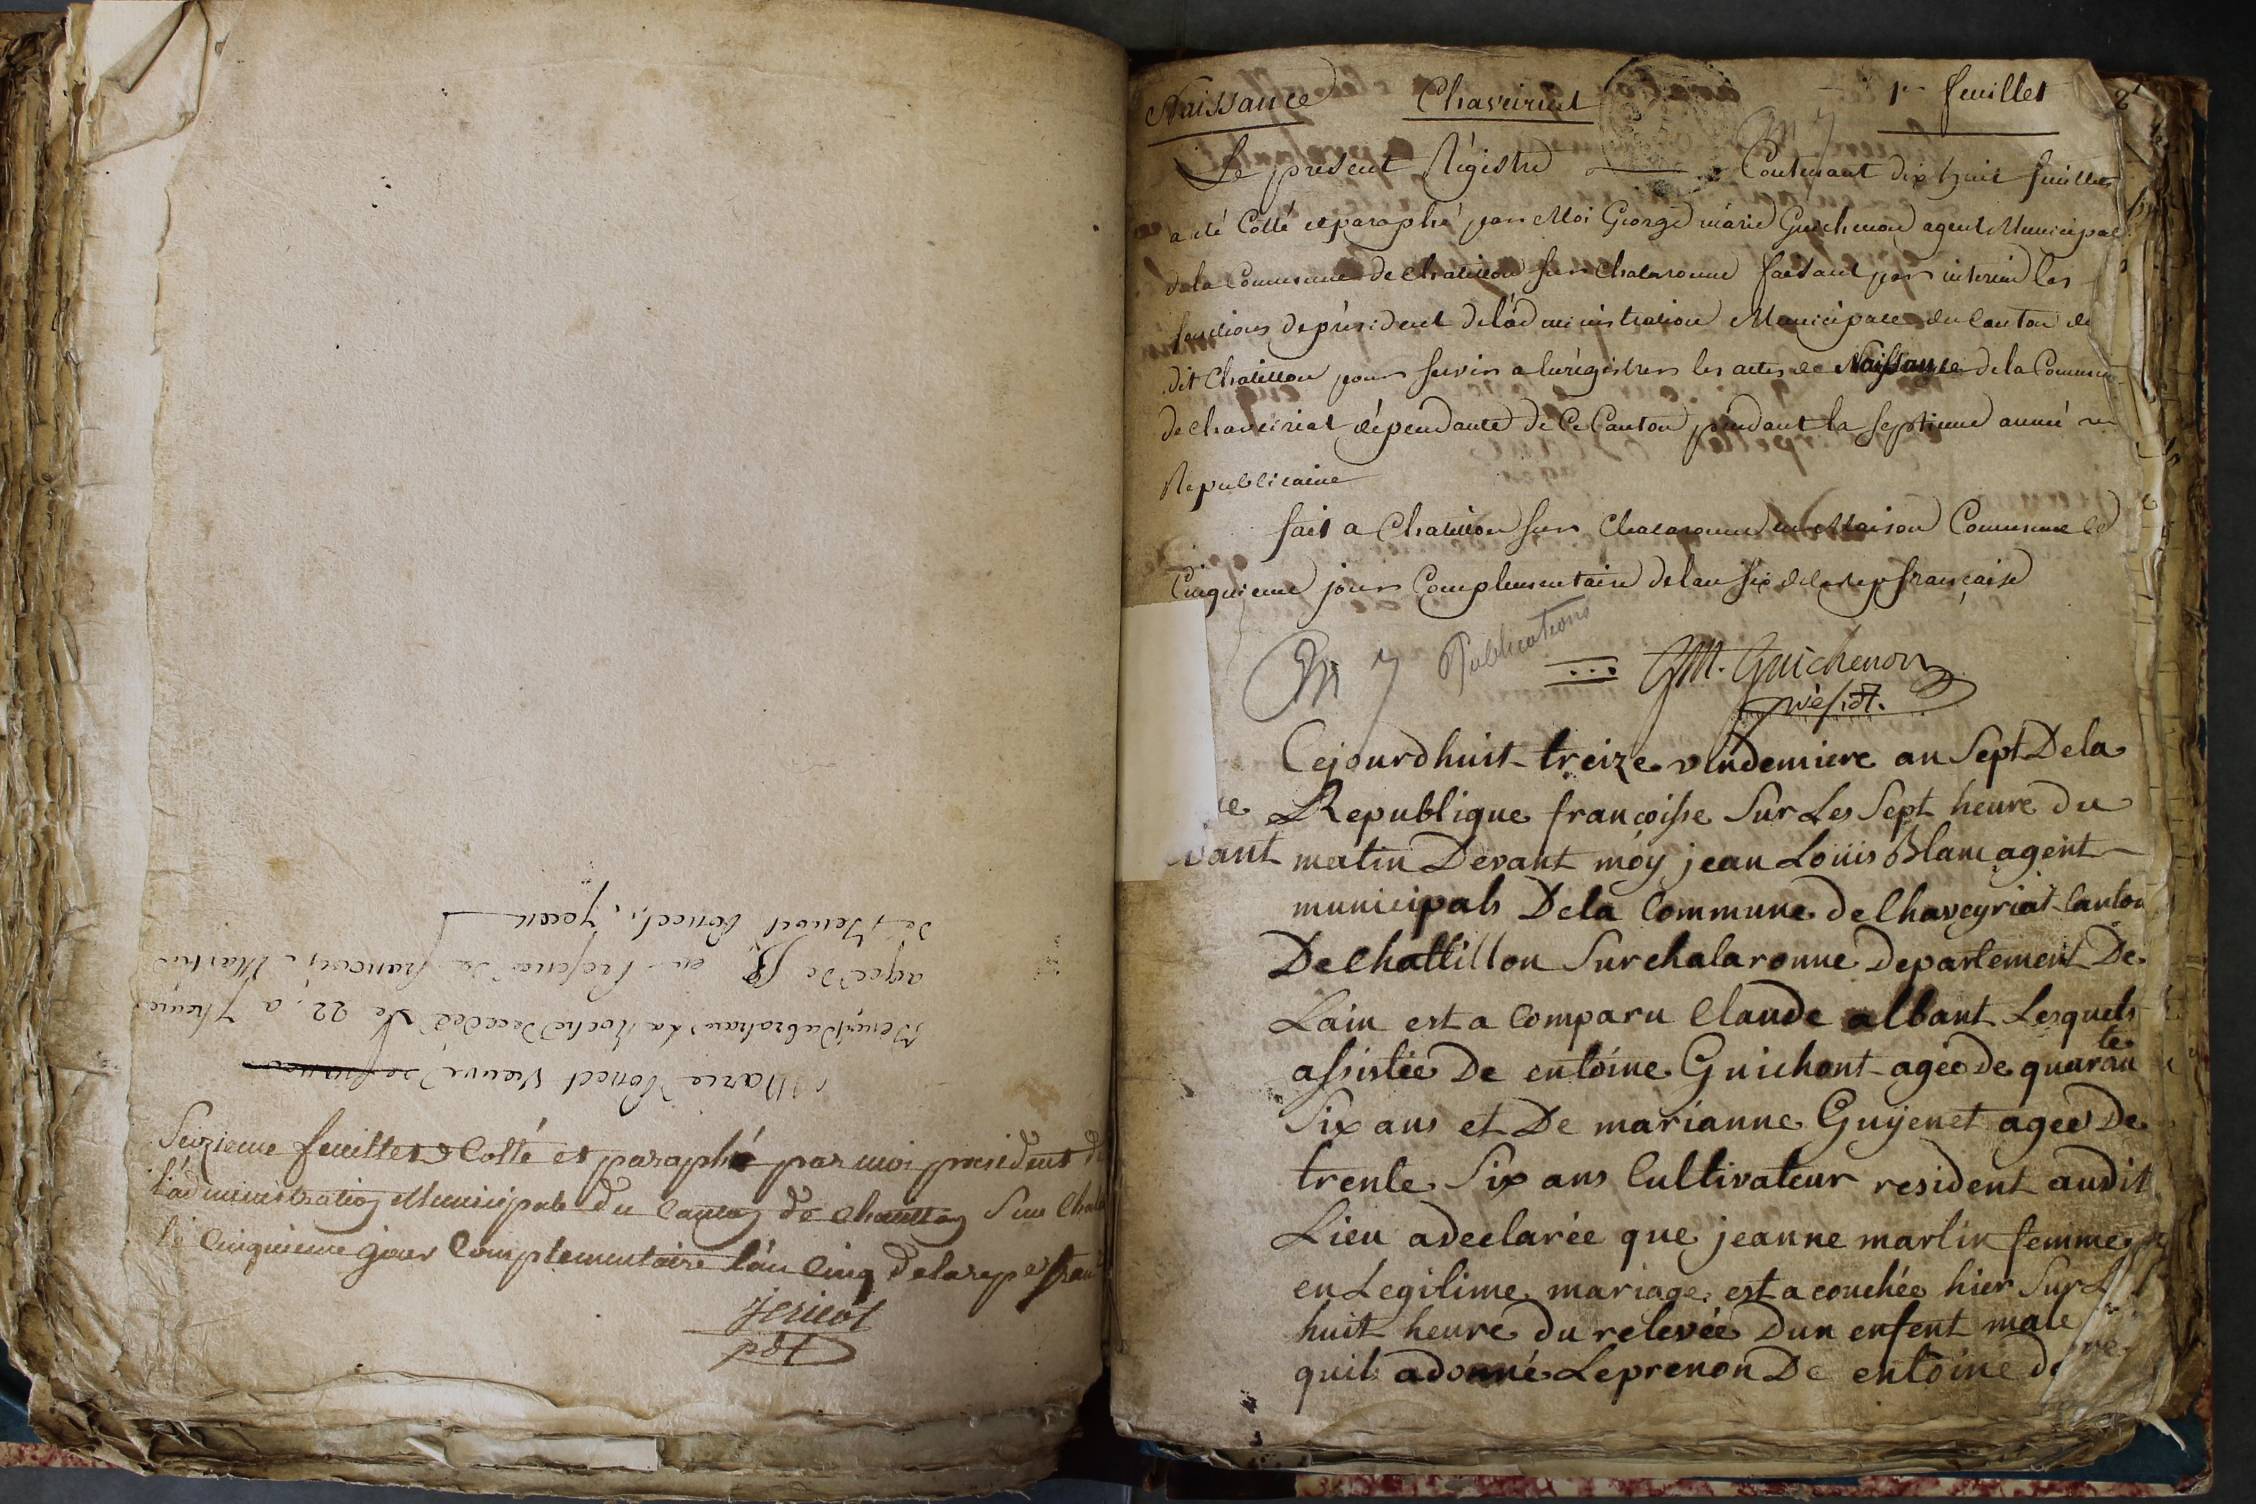 Marie Poncet Veuve de francois
Benoist Dubrohau La Roche Decedée le 22. a 7 heure
agée de en Presence de francois Martin
de Benoit Poncet.
Seizieme feuillet Cotté et paraphé par moi president de
l'administration Municipale du Canton de Chatillon Sur Chala
le Cinquieme jour Complementaire l'an Cinq de la rep. e fran
Jericot
pdt
Naissance Chaveiriat 1er feuillet
Le present Régistre Contenant dix huit feuillets
a été Cotté et paraphé par Moi George marie Guichenon agent Municipal
de la Commune de Chatillon sur Chalaronne faisant par interim les
fonctions de président de l'administration Municipale du Canton du
dit Chatillon pour servir a enrégistrer les actes de Naissance de la Commune
de Chaveiriat dépendante de Ce Canton pendant la septieme année
Republicaine
fait a Chatillon sur Chalaronne en Maison Commune le
Cinquieme jour Complementaire de lan six de la rep française
Publications
GM. Guichenon
présidt.
Cejourdhuit treize vindemiere an Sept Dela
Republique françoisse Sur Les Sept heure du
vant matin Devant moy jean Loüis Blanc agent
municipals Dela Commune de Chaveyriat Canton
De Chattillon Surchalaronne Departement De
Lain est a Comparu Claude albant Lesquels
assistée De entoine Guichont ageé de quarante
Six ans et De marianne Guyenet ageé De
trente Six ans Cultivateur resident audit
Lieu adeclarée que jeanne martin femme
en Legitime mariage est acouchée hier Sur L
huit heure du relevée Dun enfent male
quil adonné Leprenon De entoine de